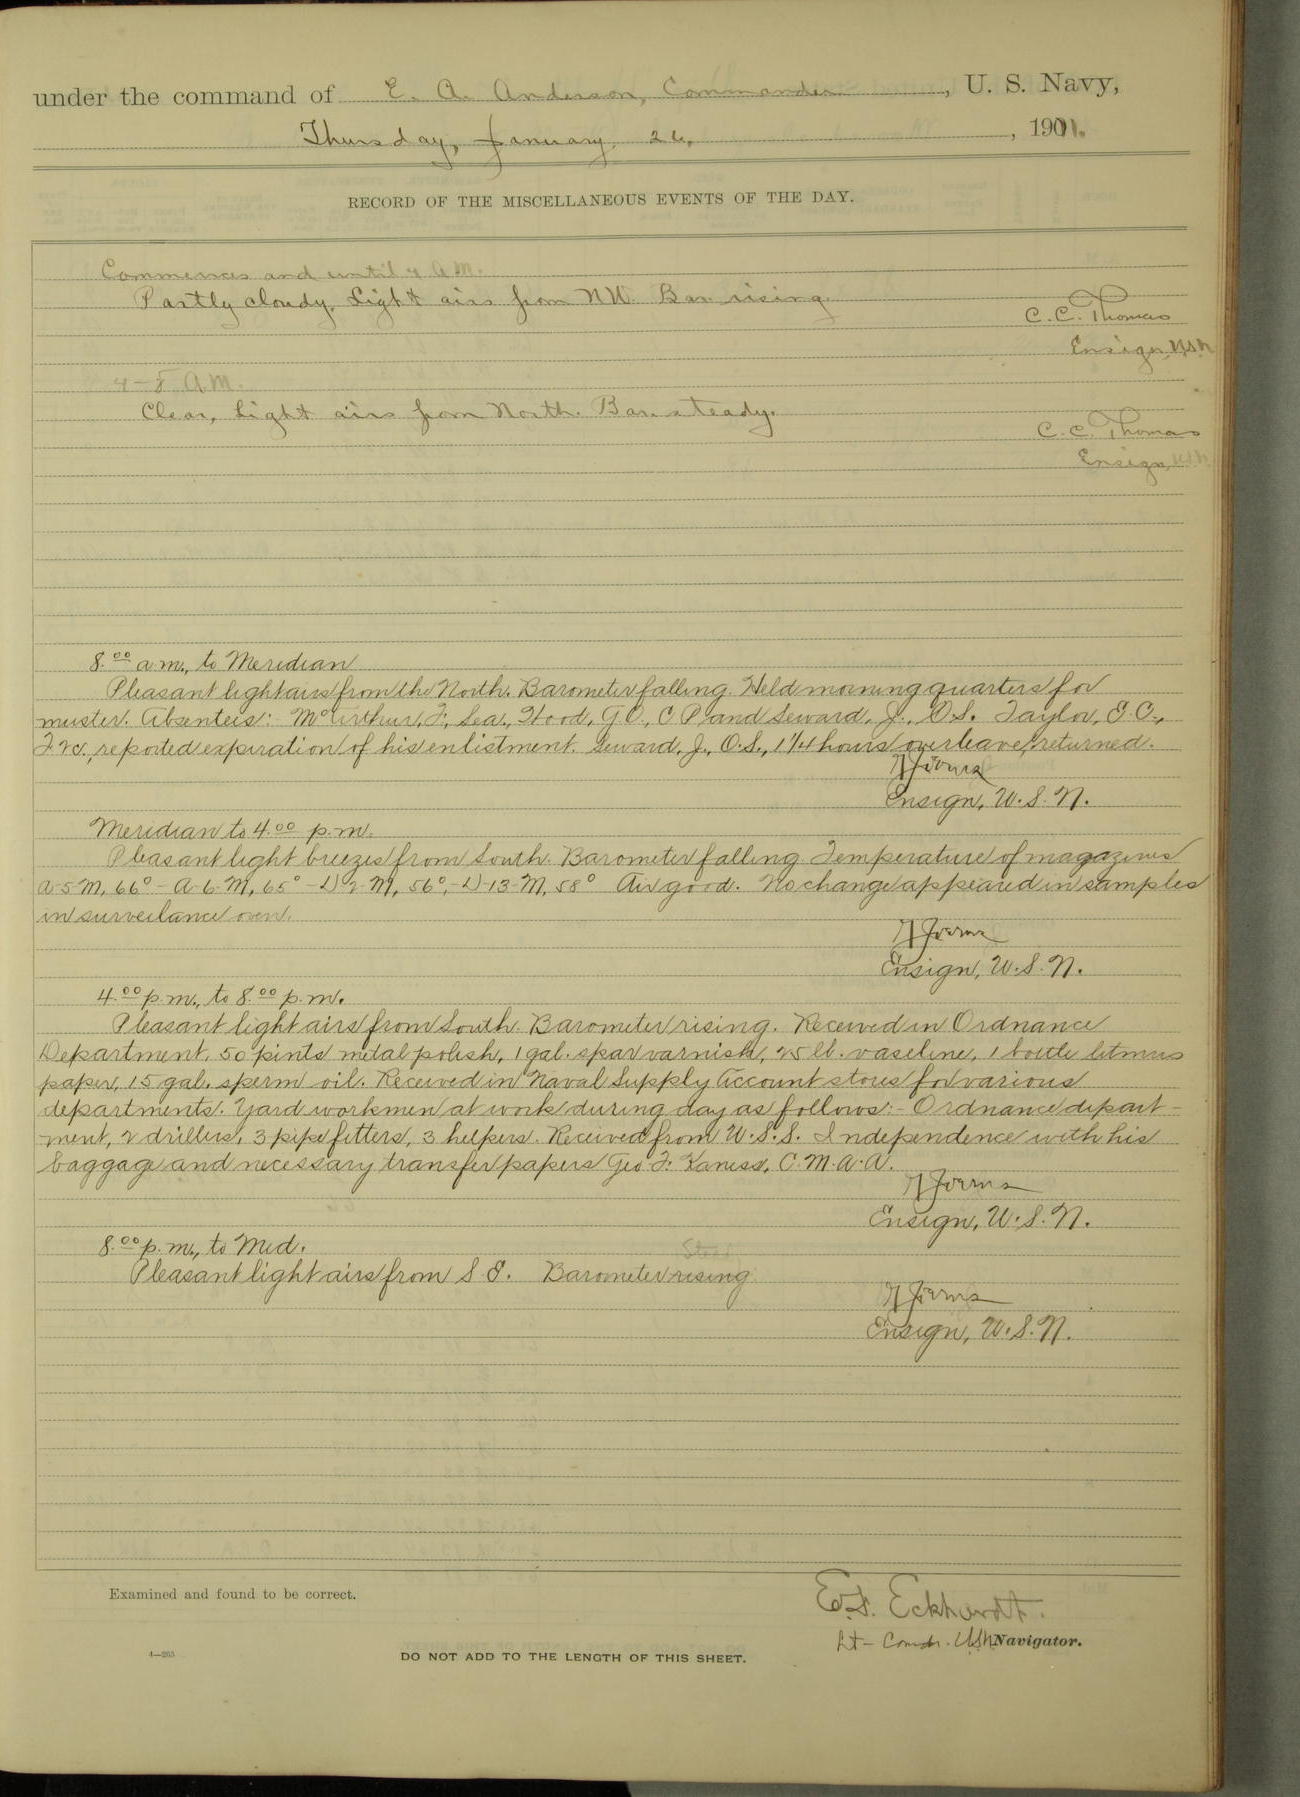 under the command of E. A. Anderson, Commander, U. S. Navy,
Thursday, January 26, 1911.
RECORD OF THE MISCELLANEOUS EVENTS OF THE DAY.
Commences and until 4 A.M.
Partly cloudy. Light airs from NW. Bar. rising.
C. C. Thomas
Ensign, USN
4-8 A.M.
Clear, Light airs from North. Bar. steady.
C. C. Thomas
Ensign, USN
8.00 a.m., to Meridian
Pleasant light airs from the North. Barometer falling. Held morning quarters for
muster. Absentees: McArthur, F., Sea., Hood, G.O., C.P. and Seward, J., O.S. Taylor, E.C.,
F.2c., reported expiration of his enlistment. Seward, J., O.S., 1 1/4 hours overleave, returned.
Ensign, U.S.N.
Meridian to 4.00 p.m.
Pleasant light breezes from South. Barometer falling. Temperature of magazines
A-5-M, 66° - A-6-M, 65° - D-2-M, 56°, - D-13-M, 58° Air good. No change appeared in samples
in surveilance oven.
Ensign, U.S.N.
4.00 p.m., to 8.00 p.m.
Pleasant light airs from South. Barometer rising. Received in Ordnance
Department, 50 pints metal polish, 1 gal. spar varnish, 25 lb. vaseline, 1 bottle litmus
paper, 15 gal. sperm oil. Received in Naval Supply Account stores for various
departments. Yard workmen at work during day as follows:- Ordnance depart-
ment, 2 drillers, 3 pipe fitters, 3 helpers. Received from U.S.S. Independence with his
baggage and necessary transfer papers Geo. F. Kaness, C.M.A.A.
Ensign, U.S.N.
8.00 p.m., to Mid.
Pleasant light airs from S E. Barometer rising.
Ensign, U.S.N.
Examined and found to be correct.
E. S. Eckhardt.
Lt-Comdr. USN Navigator.
4—265
DO NOT ADD TO THE LENGTH OF THIS SHEET.